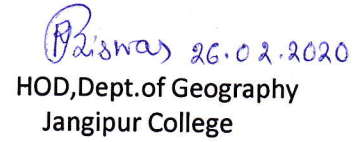 PBiswas 26.02.2020
HOD,Dept.of Geography
Jangipur College